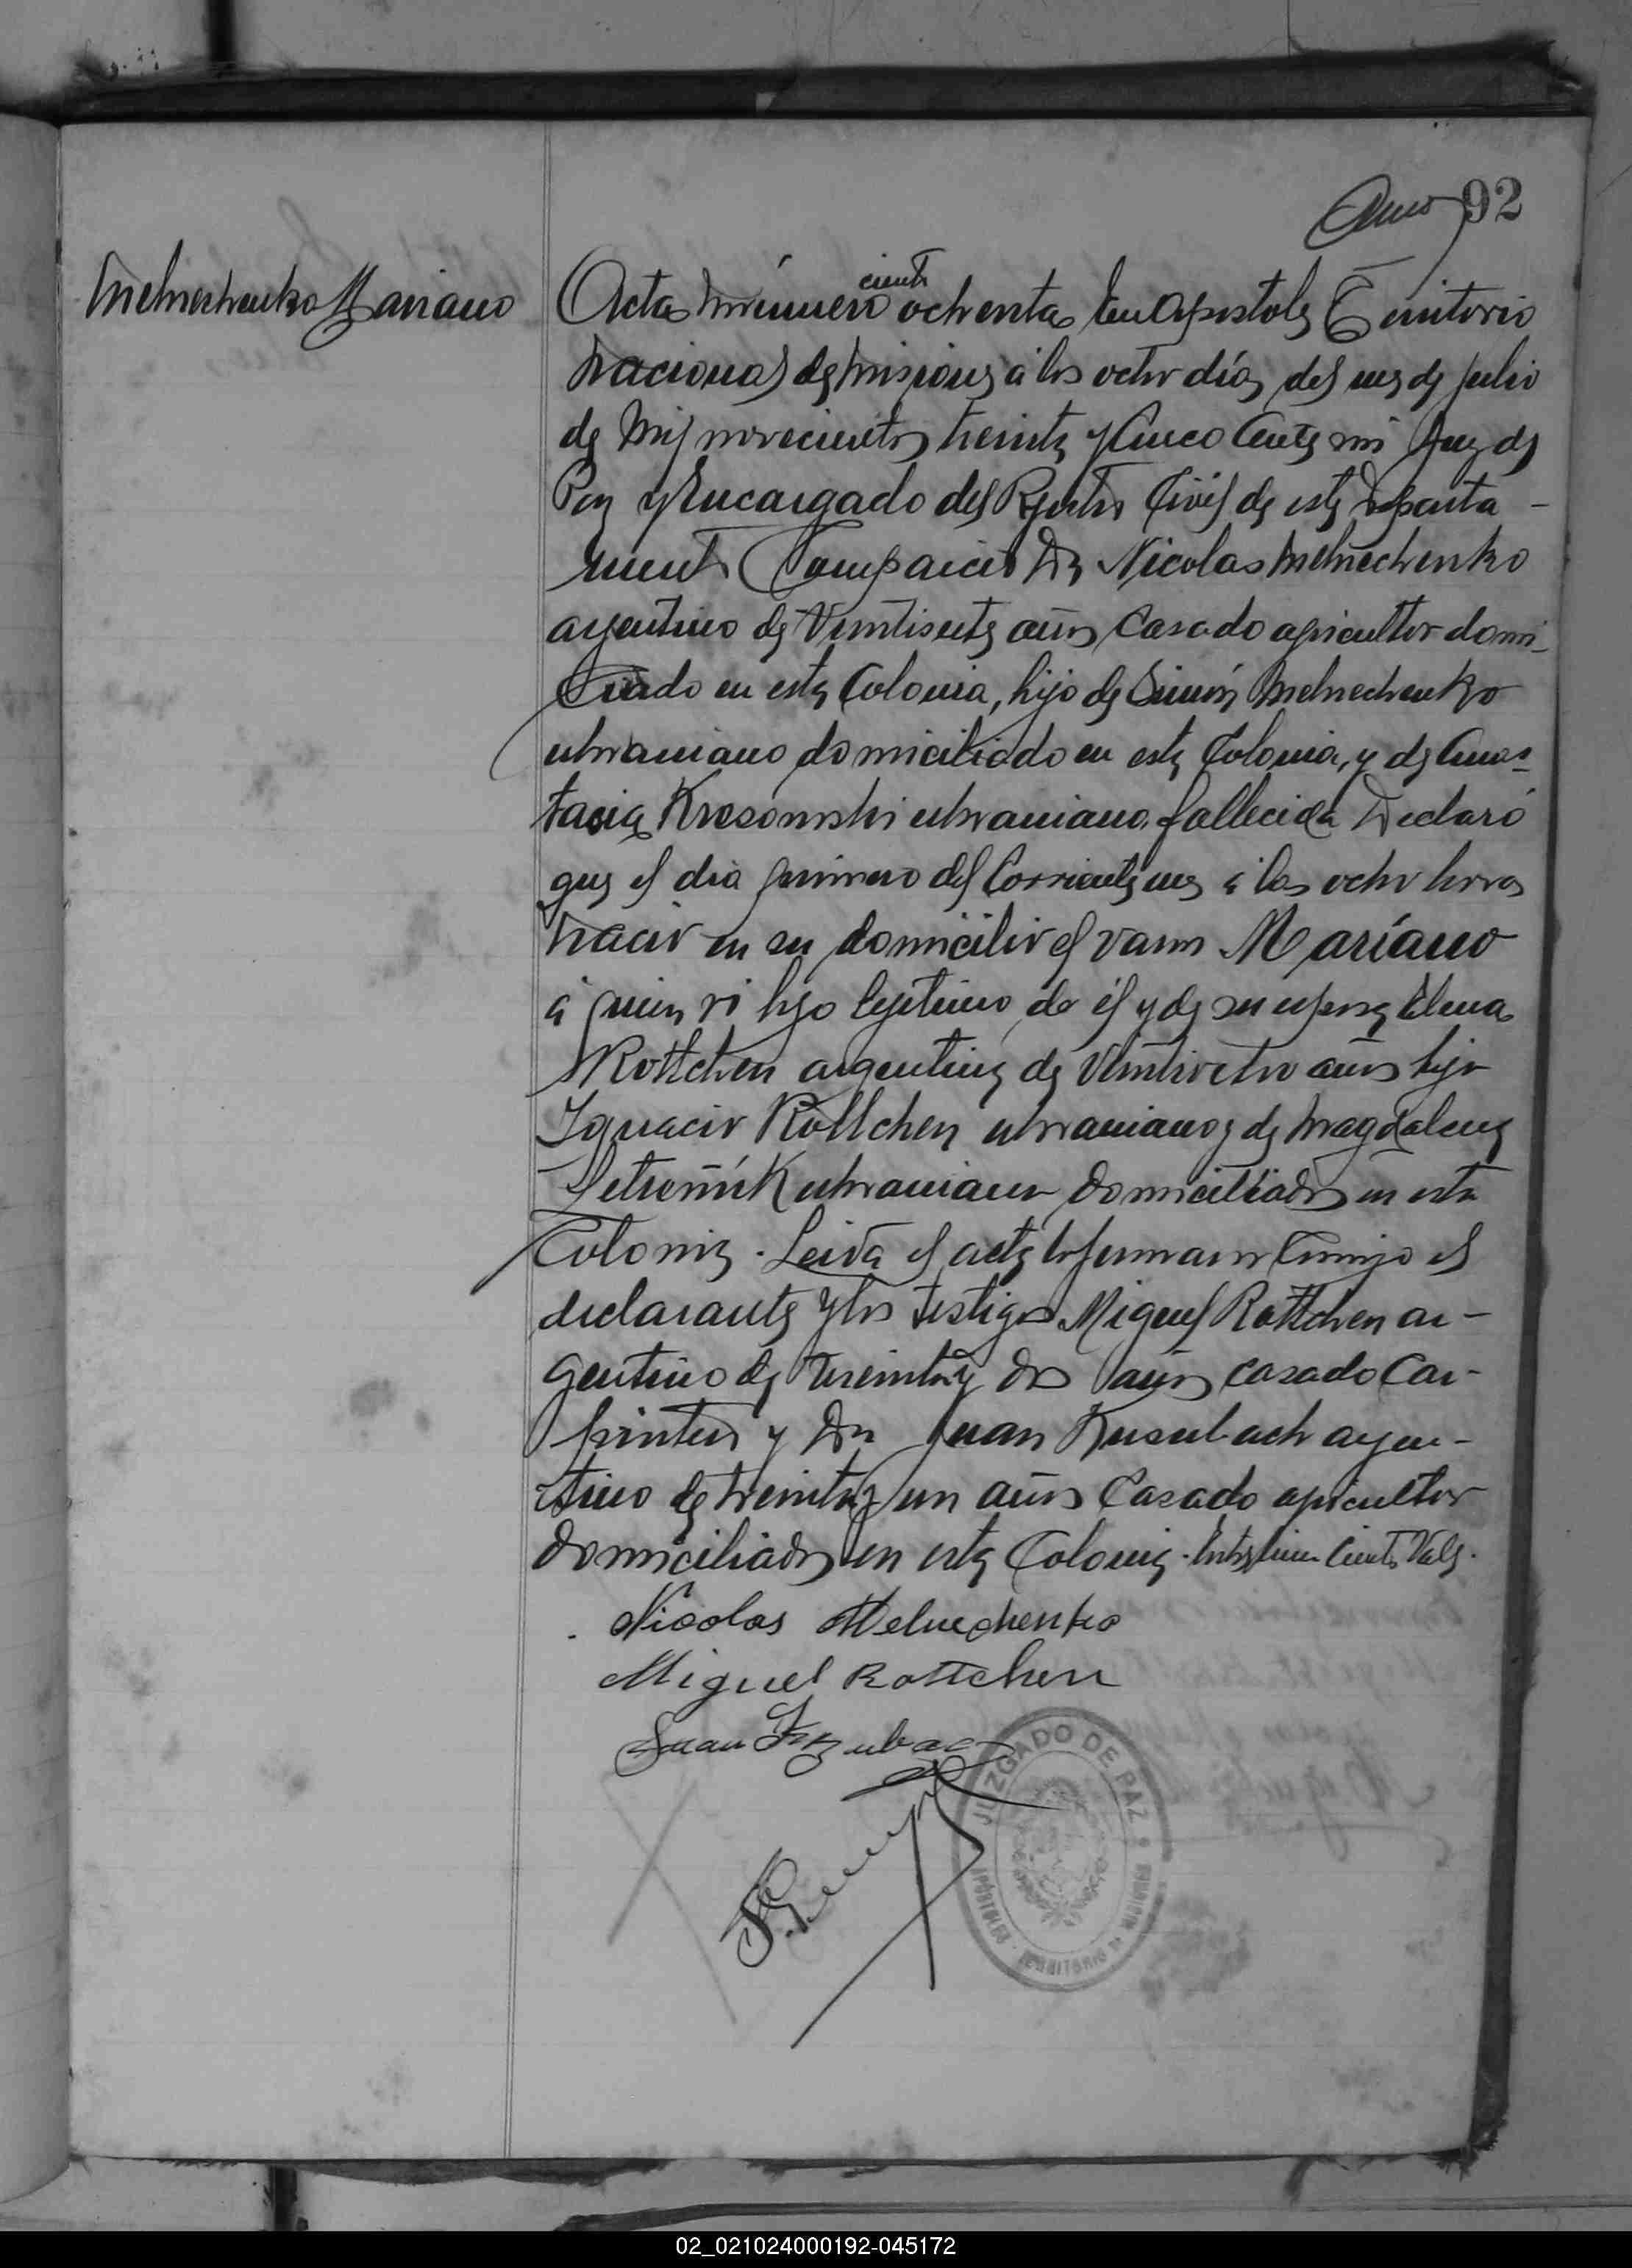 92
Melnechenko Mariano
ciento
Acta número ochenta En Apostoles Territorio
Nacional de Misiones á los ocho días del mes de Julio
de Mil novecientos treinta y Cinco Ante mi Juez de
Paz y Encargado del Rejistro Civil de este Departa-
mento Compareció Dn Nicolas Melnechenko
argentino de Veintisiete años Casado agricultor domi-
ciliado en esta Colonia, hijo de Simón Melnechenko
ukraniano domiciliado en esta Colonia, y de Anas-
tacia ukraniano fallecida Declaró
que el dia primero del Corriente mes á las ocho horas
Nació en su domicilio el varon Mariano
á quien vi hijo lejitimo de él y de su esposa Elena
Rottchen argentina de Veintiocho años hija
Ignacio Rottchen ukraniano y de Magdalena
ukraniana domiciliados en esta
Colonia. Leida el acta la firmaron Conmigo el
declarante y los testigos Miguel Rottchen ar-
gentino de treinta y dos años casado Car-
pintero y Dn Juan argen-
tino de treinta y un años Casado agricultor
domiciliados en esta Colonia. Entre linea Ciento Vale.
Nicolas Melnechenko
Miguel Rottchen
Juan
JUZGADO DE PAZ
APÓSTOLES - TERRITORIO DE MISIONES
02_021024000192-045172